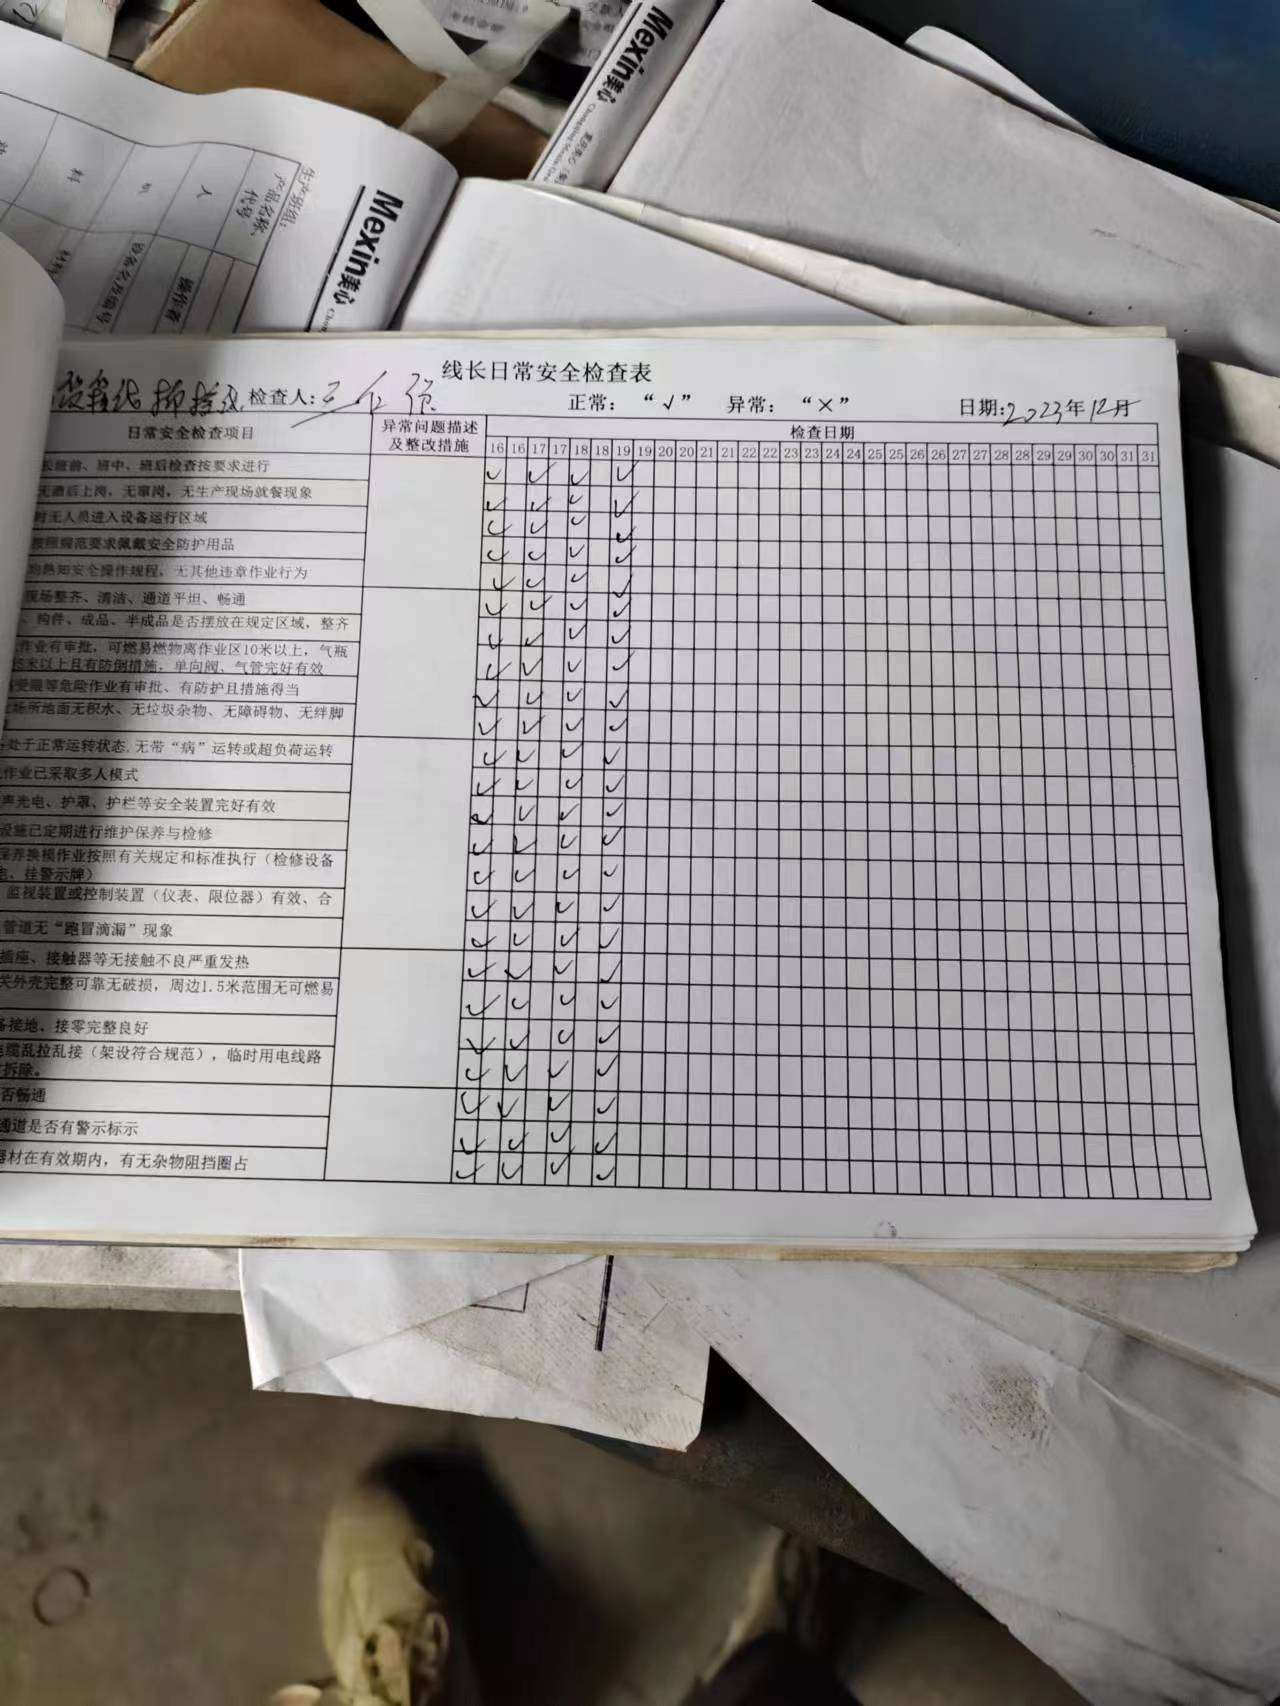 Mexin美心
Mexin美心
生产班组:
产品名称、
代号
人
机
料
操作者
设备名及编号
线长日常安全检查表
检查人:
正常: “√” 异常: “×” 日期:2023年12月
日常安全检查项目
异常问题描述
及整改措施
检查日期
16 16 17 17 18 18 19 19 20 20 21 21 22 22 23 23 24 24 25 25 26 26 27 27 28 28 29 29 30 30 31 31
班前、班中、班后检查按要求进行
酒后上岗, 无窜岗, 无生产现场就餐现象
时无人员进入设备运行区域
按照规范要求佩戴安全防护用品
熟知安全操作规程, 无其他违章作业行为
现场整齐、清洁、通道平坦、畅通
、构件、成品、半成品是否摆放在规定区域, 整齐
作业有审批, 可燃易燃物离作业区10米以上, 气瓶
5米以上且有防倒措施, 单向阀、气管完好有效
受限等危险作业有审批、有防护且措施得当
场所地面无积水、无垃圾杂物、无障碍物、无绊脚
处于正常运转状态, 无带“病”运转或超负荷运转
作业已采取多人模式
声光电、护罩、护栏等安全装置完好有效
设施已定期进行维护保养与检修
保养换模作业按照有关规定和标准执行 (检修设备
电、挂警示牌)
监视装置或控制装置 (仪表、限位器) 有效、合
管道无“跑冒滴漏”现象
插座、接触器等无接触不良严重发热
关外壳完整可靠无破损, 周边1.5米范围无可燃易
备接地、接零完整良好
电缆乱拉乱接 (架设符合规范), 临时用电线路
拆除。
否畅通
通道是否有警示标示
器材在有效期内, 有无杂物阻挡圈占